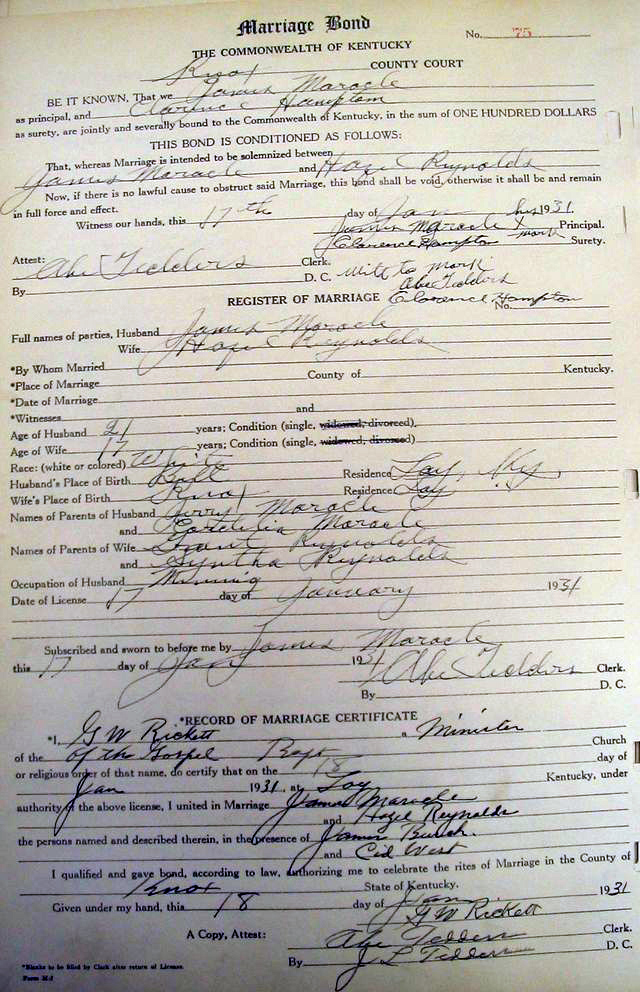 Marriage Bond
No. 75
THE COMMONWEALTH OF KENTUCKY
Knox COUNTY COURT
BE IT KNOWN, That we James Maracle
as principal, and Clarence Hampton
as surety, are jointly and severally bound to the Commonwealth of Kentucky, in the sum of ONE HUNDRED DOLLARS
THIS BOND IS CONDITIONED AS FOLLOWS:
That, whereas Marriage is intended to be solemnized between
James Maracle and Hazel Reynolds
Now, if there is no lawful cause to obstruct said Marriage, this bond shall be void, otherwise it shall be and remain
in full force and effect.
Witness our hands, this 17th day of Jan 1931.
his
James Maracle X Principal.
mark
Clarence Hampton Surety.
Attest:
Abe Tedders Clerk.
By D. C.
Witt to mark
Abe Tedders
Clarence Hampton
REGISTER OF MARRIAGE
No.
Full names of parties, Husband James Maracle
Wife Hazel Reynolds
*By Whom Married
*Place of Marriage County of Kentucky.
*Date of Marriage
*Witnesses and
Age of Husband 21 years; Condition (single, widowed, divorced).
Age of Wife 17 years; Condition (single, widowed, divorced)
Race: (white or colored) White
Husband's Place of Birth Bell Residence Loy, Ky,
Wife's Place of Birth Knox Residence Loy " "
Names of Parents of Husband Jerry Maracle
and Maracle
Names of Parents of Wife Grant Reynolds
and Syntha Reynolds
Occupation of Husband Mining
Date of License 17 day of January 1931
Subscribed and sworn to before me by James Maracle
this 17 day of Jan 1931 Abe Tedders Clerk.
By D. C.
*RECORD OF MARRIAGE CERTIFICATE
*I, G W Rickett a Minister
of the of the Gospel Bapt Church
or religious order of that name, do certify that on the 18 day of
Jan 1931, at Loy Kentucky, under
authority of the above license, I united in Marriage James Maracle
and Hazel Reynolds
the persons named and described therein, in the presence of James
and Cid West
I qualified and gave bond, according to law, authorizing me to celebrate the rites of Marriage in the County of
Knox State of Kentucky.
Given under my hand, this 18 day of Jan 1931
G W Rickett
A Copy, Attest: Abe Tedders Clerk.
By J L Tedders D. C.
*Blanks to be filled by Clerk after return of License.